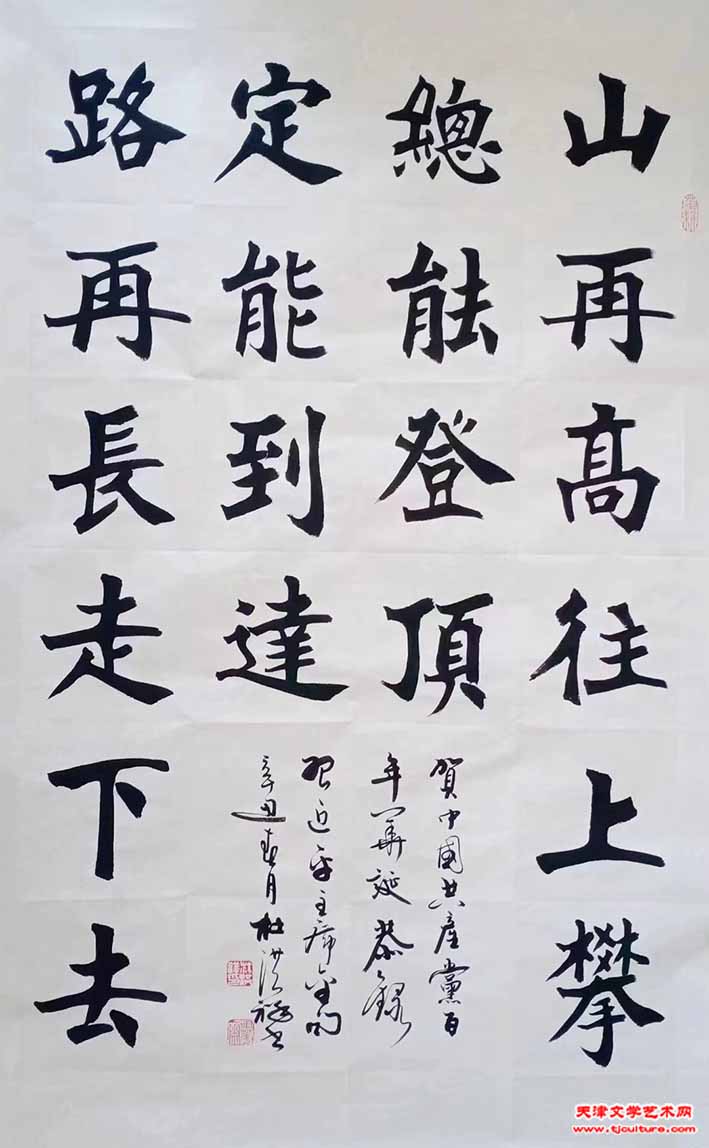 山再髙往上攀
總能登頂
路再長走下去
定能到達
賀中國共產黨百
年華誕恭錄
習近平主席金句
辛丑春月杜洪書
天津文学艺术网
www.tjculture.com